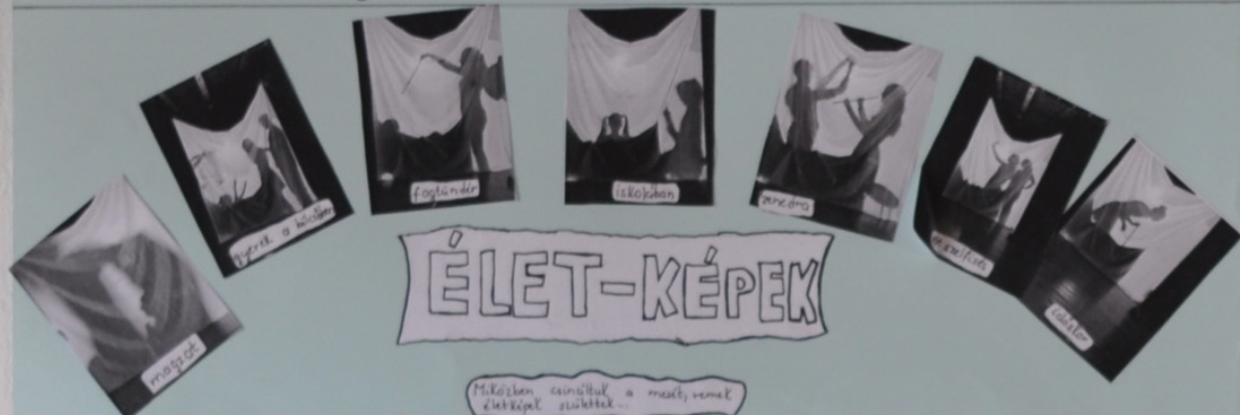 magzat
gyerek a bölcsőben
fogtündér
iskolában
zeneóra
időskor
ÉLET-KÉPEK
Miközben csináltuk a mesét, remek
életképek születtek...